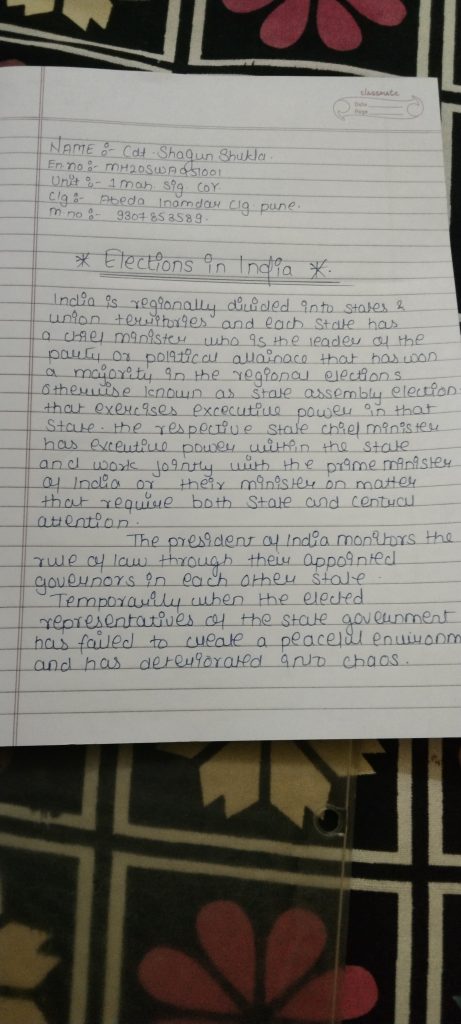 classmate
Date
Page
NAME :- Cdt Shagun Shukla.
En.no :- MH20SWA
Unit :- 1 mah sig coy.
Clg :- Abeda Inamdar Clg pune.
m no :- 9307853589.
* Elections in India *.
India is regionally divided into states &
union territories and each state has
a chief minister who is the leader of the
party or political allainace that has won
a majority in the regional elections
otherwise known as state assembly election
that exercises excecutive power in that
State. the respective state chief minister
has excutive power within the state
and work jointly with the prime minister
of India or their minister on matter
that require both state and central
attention.
The president of India monitors the
rule of law through their appointed
governors in each other state.
Temporarily when the elected
representatives of the state government
has failed to create a peaceful environm
and has deteriorated into chaos.